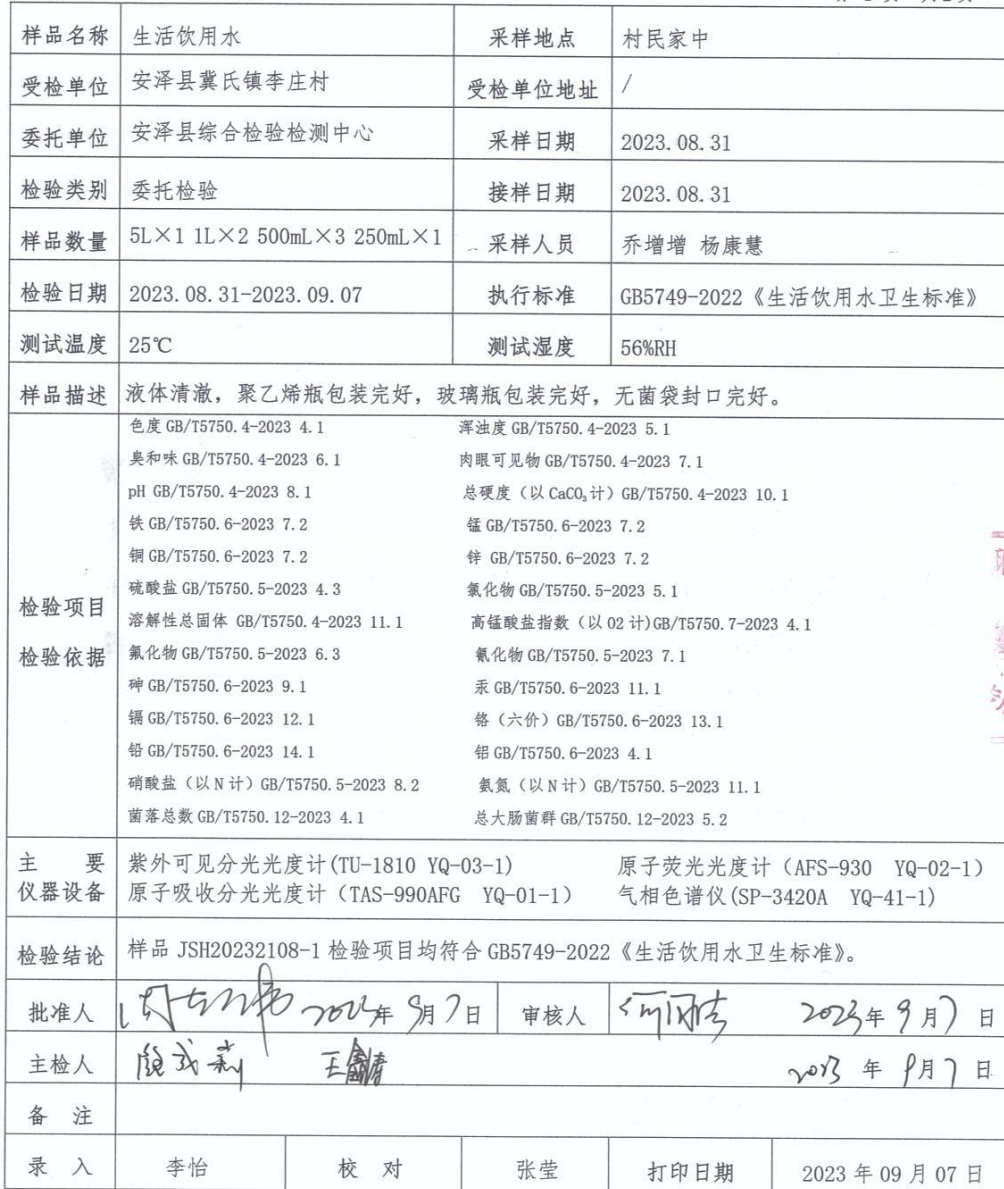 样品名称 生活饮用水 采样地点 村民家中
受检单位 安泽县冀氏镇李庄村 受检单位地址 /
委托单位 安泽县综合检验检测中心 采样日期 2023.08.31
检验类别 委托检验 接样日期 2023.08.31
样品数量 5L×1 1L×2 500mL×3 250mL×1 采样人员 乔增增 杨康慧
检验日期 2023.08.31-2023.09.07 执行标准 GB5749-2022《生活饮用水卫生标准》
测试温度 25℃ 测试湿度 56%RH
样品描述 液体清澈，聚乙烯瓶包装完好，玻璃瓶包装完好，无菌袋封口完好。
检验项目
检验依据
色度 GB/T5750.4-2023 4.1 浑浊度 GB/T5750.4-2023 5.1
臭和味 GB/T5750.4-2023 6.1 肉眼可见物 GB/T5750.4-2023 7.1
pH GB/T5750.4-2023 8.1 总硬度（以 CaCO₃计）GB/T5750.4-2023 10.1
铁 GB/T5750.6-2023 7.2 锰 GB/T5750.6-2023 7.2
铜 GB/T5750.6-2023 7.2 锌 GB/T5750.6-2023 7.2
硫酸盐 GB/T5750.5-2023 4.3 氯化物 GB/T5750.5-2023 5.1
溶解性总固体 GB/T5750.4-2023 11.1 高锰酸盐指数（以 O2 计)GB/T5750.7-2023 4.1
氟化物 GB/T5750.5-2023 6.3 氰化物 GB/T5750.5-2023 7.1
砷 GB/T5750.6-2023 9.1 汞 GB/T5750.6-2023 11.1
镉 GB/T5750.6-2023 12.1 铬（六价）GB/T5750.6-2023 13.1
铅 GB/T5750.6-2023 14.1 铝 GB/T5750.6-2023 4.1
硝酸盐（以 N 计）GB/T5750.5-2023 8.2 氨氮（以 N 计）GB/T5750.5-2023 11.1
菌落总数 GB/T5750.12-2023 4.1 总大肠菌群 GB/T5750.12-2023 5.2
主 要
仪器设备
紫外可见分光光度计(TU-1810 YQ-03-1) 原子荧光光度计（AFS-930 YQ-02-1）
原子吸收分光光度计（TAS-990AFG YQ-01-1） 气相色谱仪(SP-3420A YQ-41-1)
检验结论 样品 JSH20232108-1 检验项目均符合 GB5749-2022《生活饮用水卫生标准》。
批准人 2023年 9月7日 审核人 2023年 9月7日
主检人 2023 年 9月7日
备 注
录 入 李怡 校 对 张莹 打印日期 2023 年 09 月 07 日